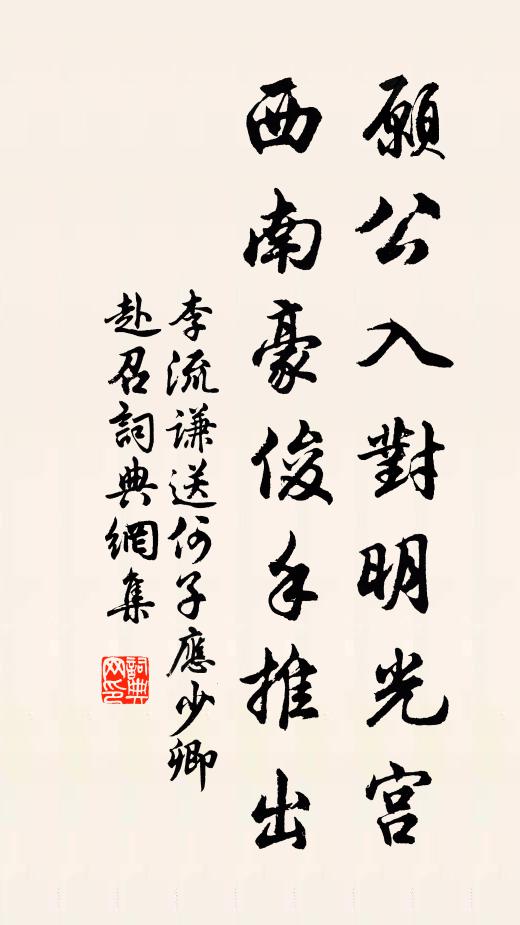 願公入對明光宮
西南豪俊手推出
李流謙送何子應少卿
赴召詞典網集
詞典網印